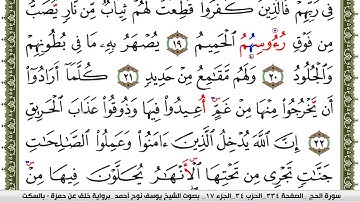 فِى رَبِّهِمْ فَالَّذِينَ كَفَرُوا۟ قُطِّعَتْ لَهُمْ ثِيَابٌ مِّن نَّارٍ يُصَبُّ
مِن فَوْقِ رُءُوسِهُمُ الْحَمِيمُ ١٩ يُصْهَرُ بِهِۦ مَا فِى بُطُونِهِمْ
وَالْجُلُودُ ٢٠ وَلَهُم مَّقَامِعُ مِنْ حَدِيدٍ ٢١ كُلَّمَآ أَرَادُوٓا۟
أَن يَخْرُجُوا۟ مِنْهَا مِنْ غَمٍّ أُعِيدُوا۟ فِيهَا وَذُوقُوا۟ عَذَابَ الْحَرِيقِ
٢٢ إِنَّ اللَّهَ يُدْخِلُ الَّذِينَ ءَامَنُوا۟ وَعَمِلُوا۟ الصَّالِحَاتِ
جَنَّاتٍ تَجْرِى مِن تَحْتِهَا الْأَنْهَارُ يُحَلَّوْنَ فِيهَا مِنْ
سورة الحج _ الصفحة ٣٣٤_ الحزب ٣٤_ الجزء ١٧ _ بصوت الشيخ يوسف نوح أحمد _برواية خلف عن حمزة - بالسكت